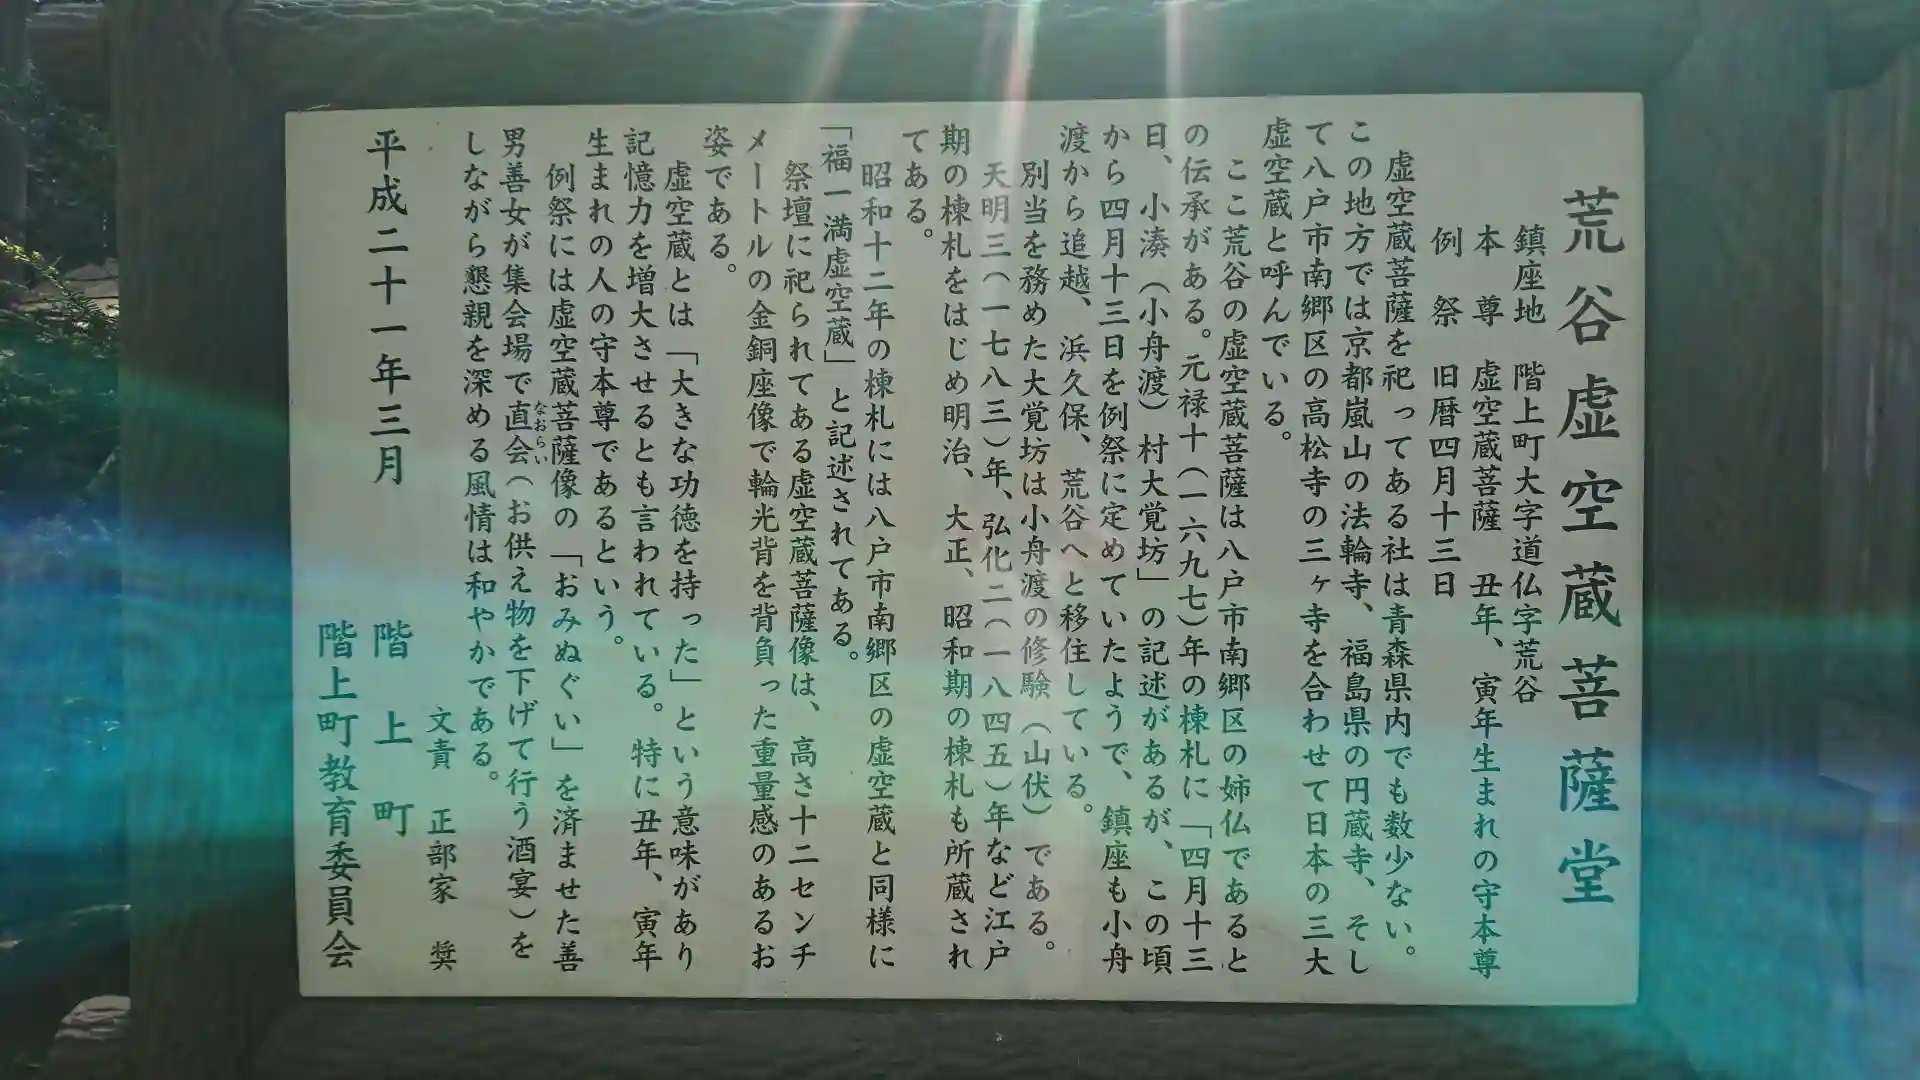 荒谷虚空蔵菩薩堂
鎮座地　階上町大字道仏字荒谷
本　尊　虚空蔵菩薩　丑年、寅年生まれの守本尊
例　祭　旧暦四月十三日
虚空蔵菩薩を祀ってある社は青森県内でも数少ない。
この地方では京都嵐山の法輪寺、福島県の円蔵寺、そし
て八戸市南郷区の高松寺の三ヶ寺を合わせて日本の三大
虚空蔵と呼んでいる。
ここ荒谷の虚空蔵菩薩は八戸市南郷区の姉仏であると
の伝承がある。元禄十（一六九七）年の棟札に「四月十三
日、小湊（小舟渡）村大覚坊」の記述があるが、この頃
から四月十三日を例祭に定めていたようで、鎮座も小舟
渡から追越、浜久保、荒谷へと移住している。
別当を務めた大覚坊は小舟渡の修験（山伏）である。
天明三（一七八三）年、弘化二（一八四五）年など江戸
期の棟札をはじめ明治、大正、昭和期の棟札も所蔵され
てある。
昭和十二年の棟札には八戸市南郷区の虚空蔵と同様に
「福一満虚空蔵」と記述されてある。
祭壇に祀られてある虚空蔵菩薩像は、高さ十二センチ
メートルの金銅座像で輪光背を背負った重量感のあるお
姿である。
虚空蔵とは「大きな功徳を持った」という意味があり
記憶力を増大させるとも言われている。特に丑年、寅年
生まれの人の守本尊であるという。
例祭には虚空蔵菩薩像の「おみぬぐい」を済ませた善
男善女が集会場で直会（お供え物を下げて行う酒宴）を
なおらい
しながら懇親を深める風情は和やかである。
文責　正部家　奨
平成二十一年三月
階上町
階上町教育委員会